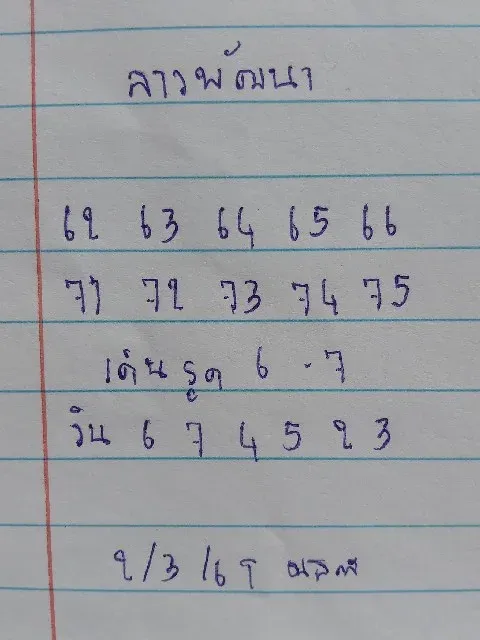 ลาวพัฒนา
62 63 64 65 66
71 72 73 74 75
เด่น รูด 6 - 7
วิน 6 7 4 5 2 3
2/3/6